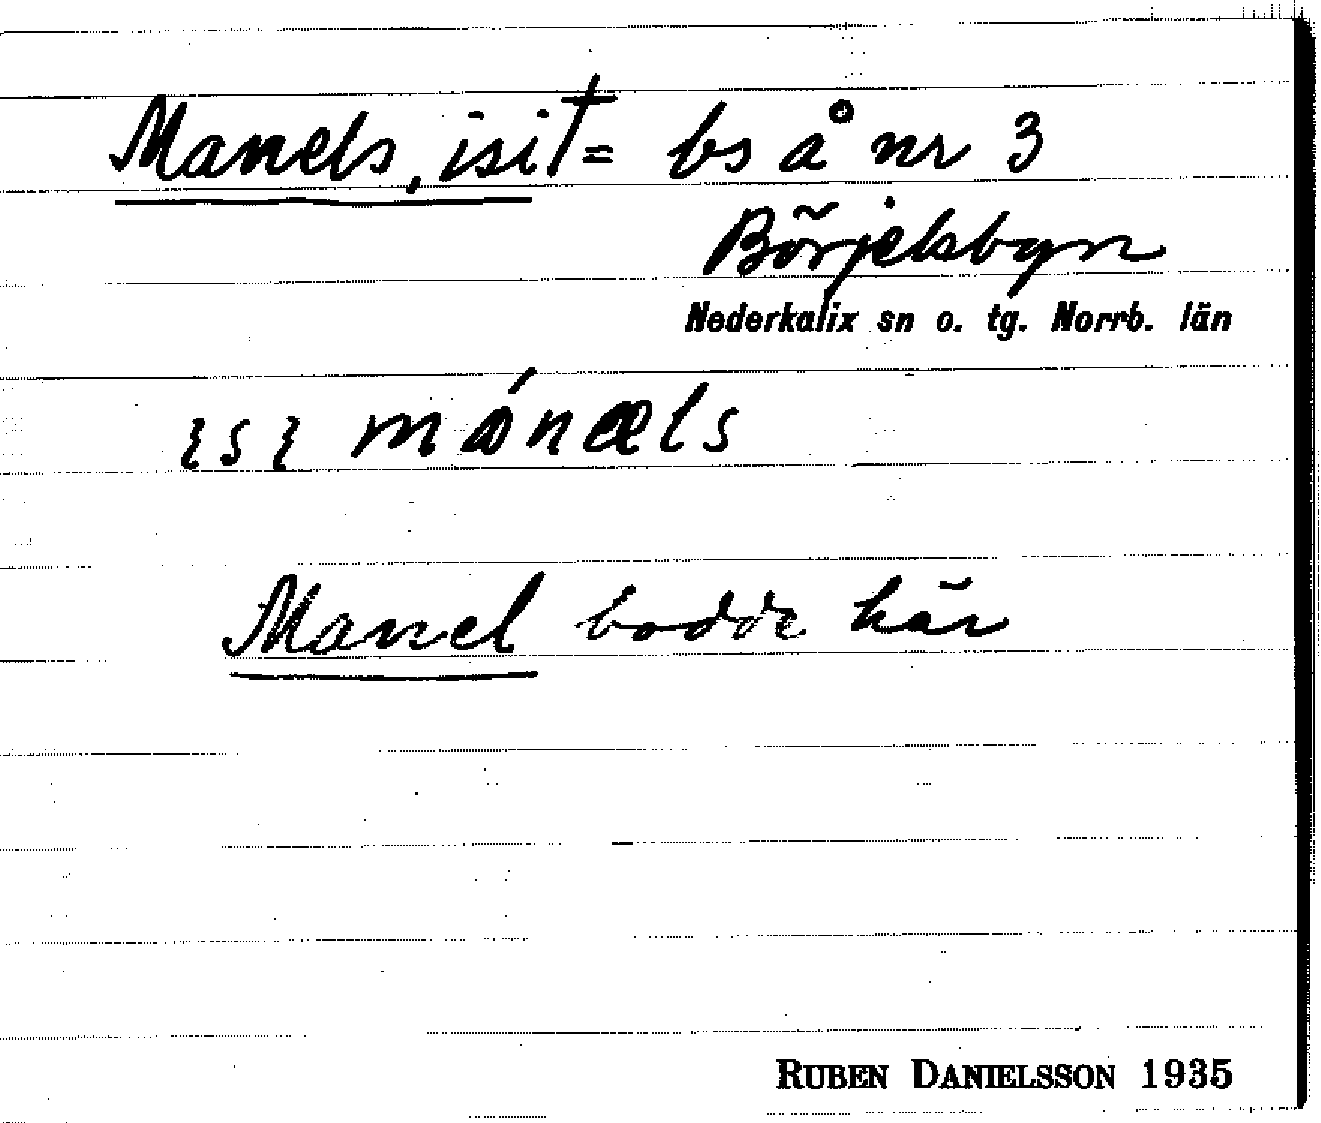 Manels, isit = bs å nr 3
Börjelsbyn
Nederkalix sn o. tg. Norrb. län
ɩsɩ mánæls
Manel bodde här
RUBEN DANIELSSON 1935